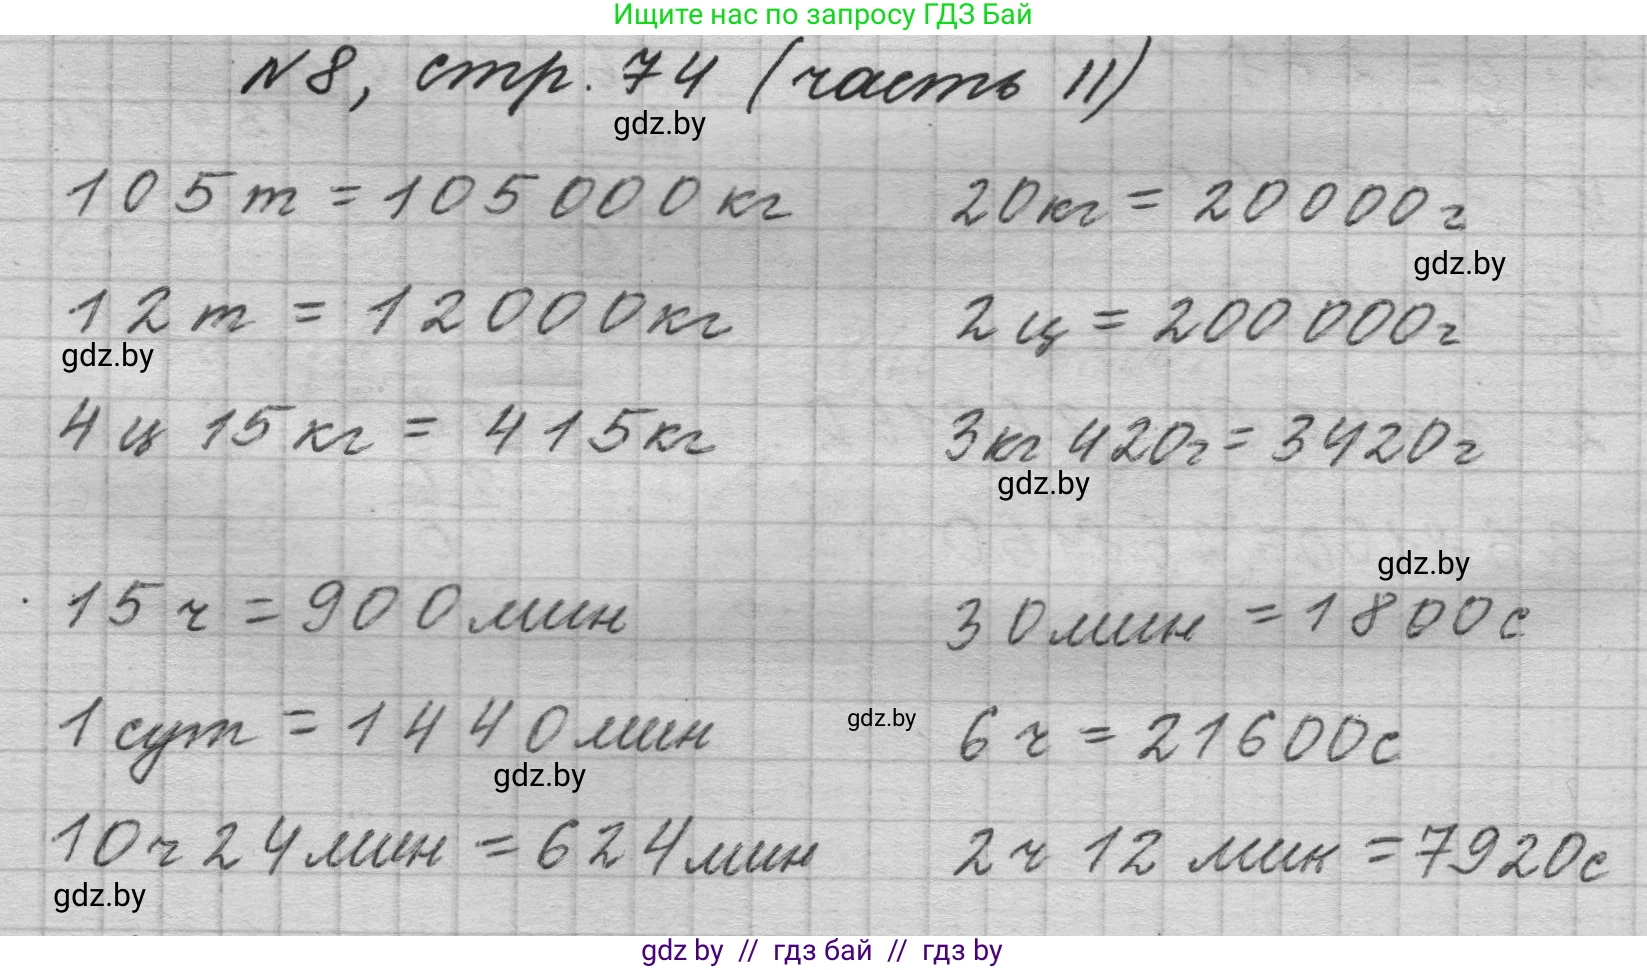 Ищите нас по запросу ГДЗ Бай
№8, стр. 74 (часть II)
gdz.by
105 т = 105000 кг 20кг = 20000 г
gdz.by
12 т = 12000 кг 2 ц = 200 000 г
gdz.by
4 ц 15 кг = 415 кг 3кг 420г = 3420 г
gdz.by
gdz.by
15 ч = 900 мин 30 мин = 1800 с
1 сут = 1440 мин gdz.by 6 ч = 21600 с
gdz.by
10 ч 24 мин = 624 мин 2 ч 12 мин = 7920 с
gdz.by
gdz by // гдз бай // гдз by